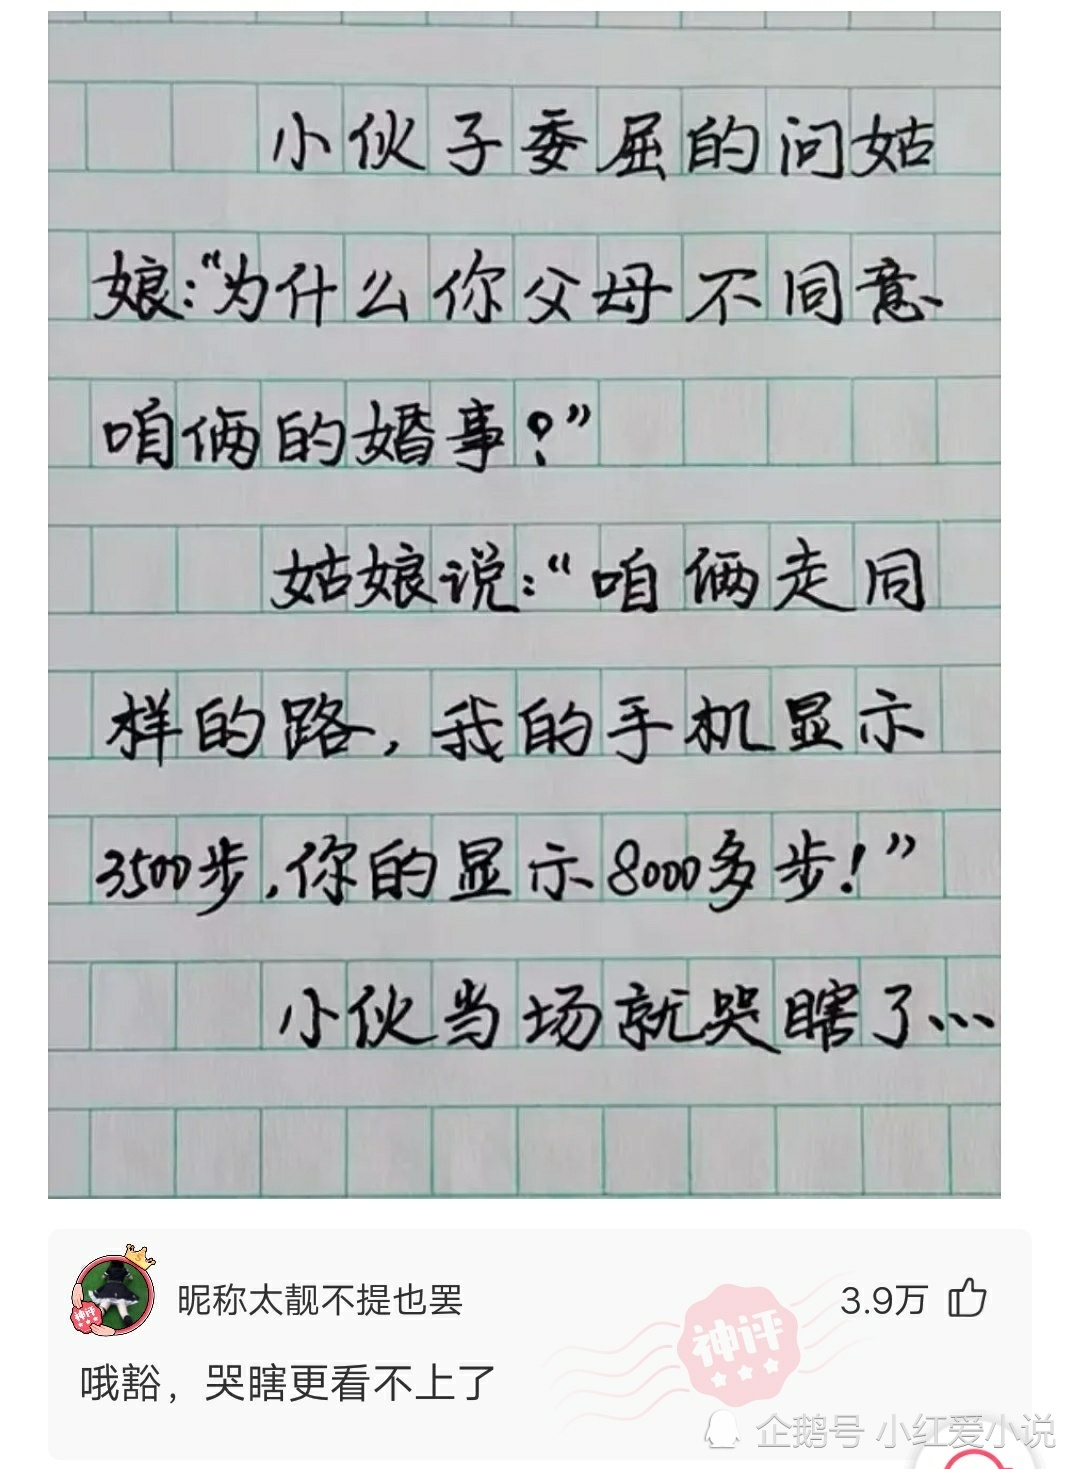 小伙子委屈的问姑
娘:“为什么你父母不同意
咱俩的婚事?”
姑娘说:“咱俩走同
样的路,我的手机显示
3500步,你的显示8000多步!”
小伙当场就哭瞎了...
昵称太靓不提也罢
3.9万
神评
神评
哦豁，哭瞎更看不上了
企鹅号 小红爱小说